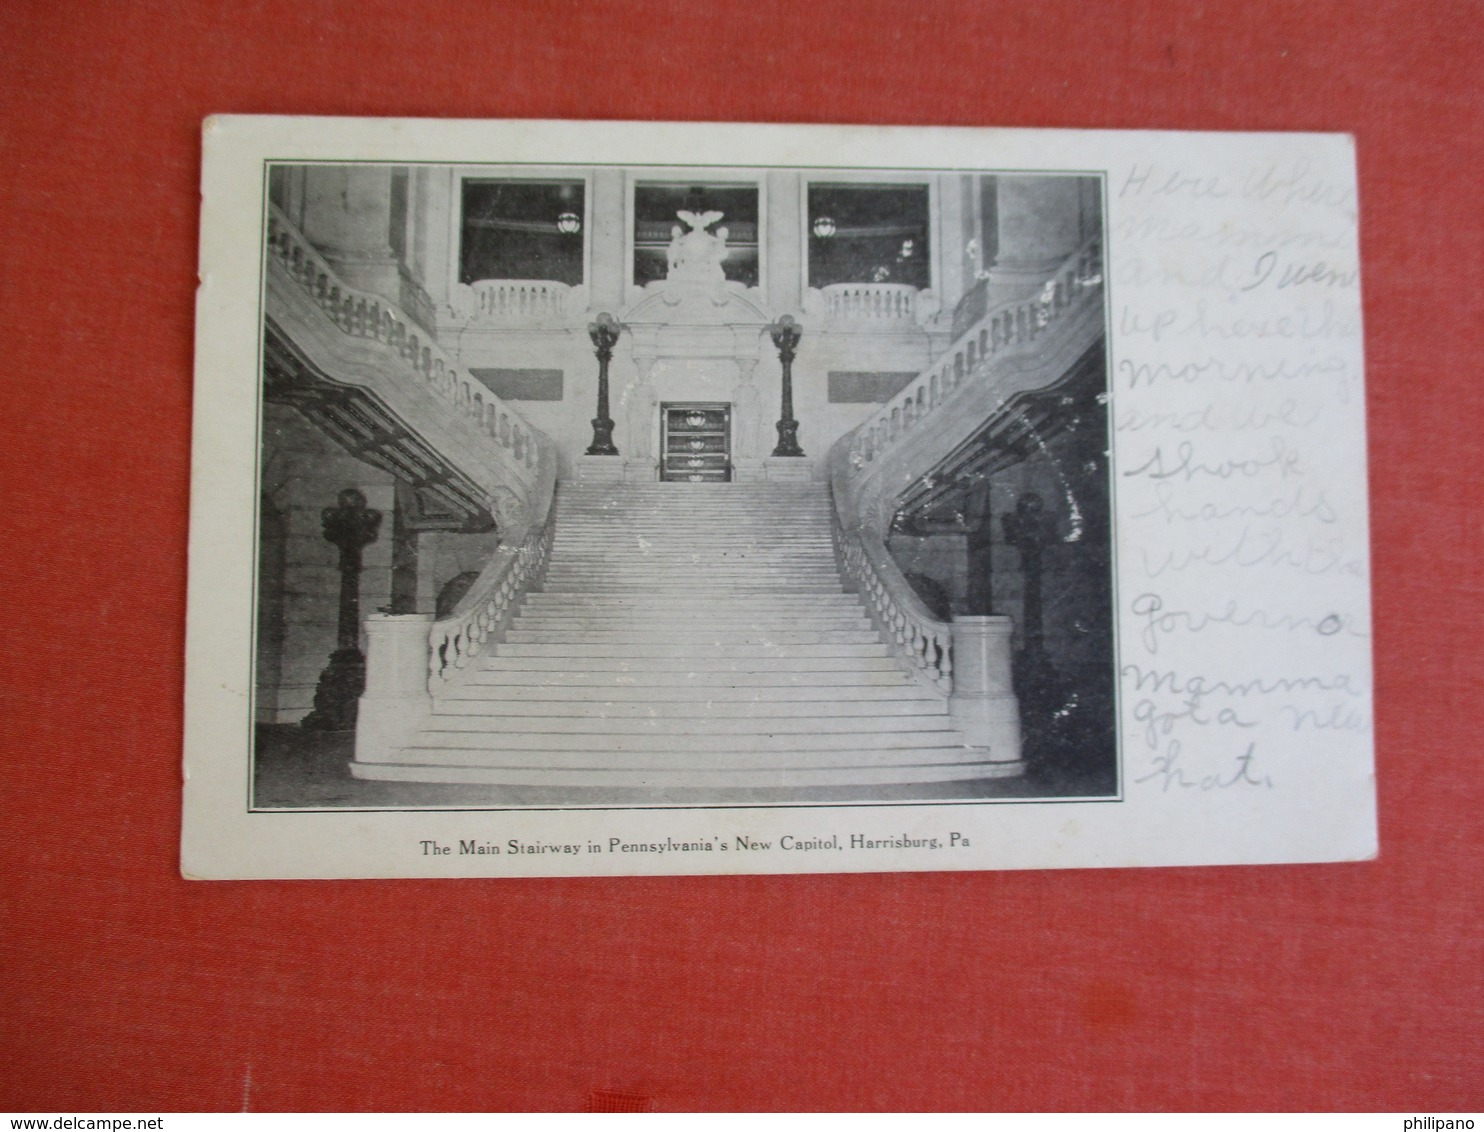 Here Where
mamma
and I wen
up here this
morning
and we
shook
hands
with the
governor
mamma
got a new
hat.
The Main Stairway in Pennsylvania's New Capitol, Harrisburg, Pa
delcampe.net
philipano